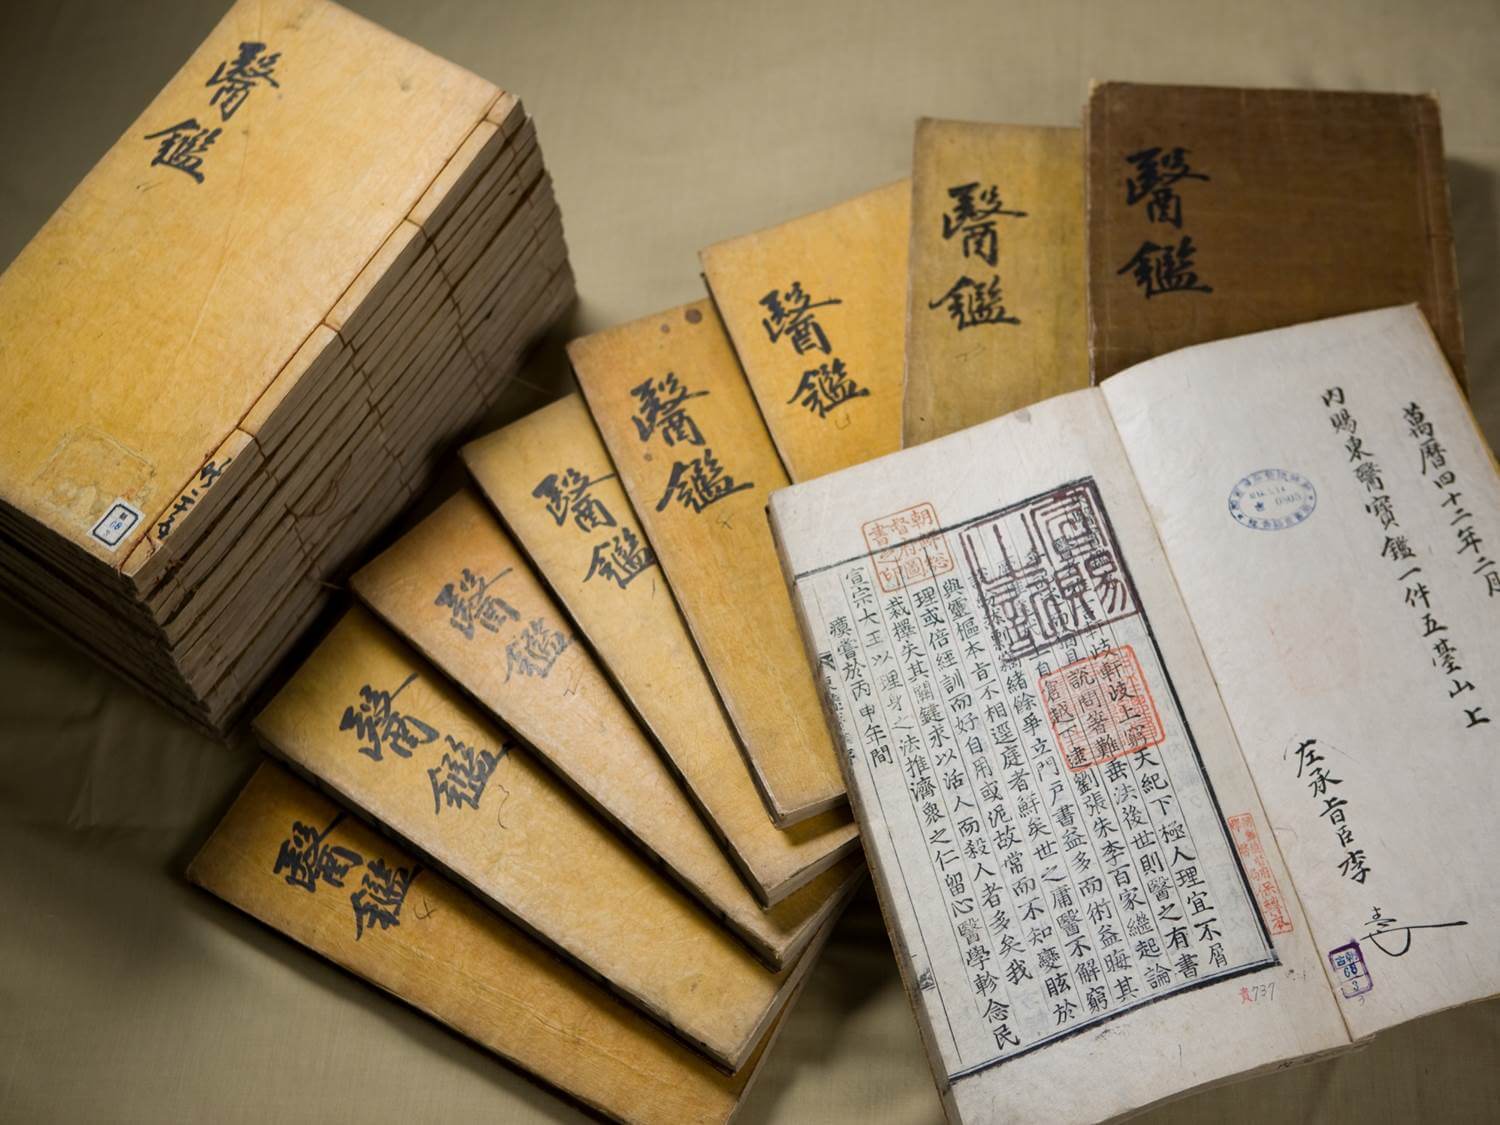 醫鑑
醫鑑
醫鑑
醫鑑
醫鑑
醫鑑
醫鑑
醫鑑
醫鑑
萬曆四十二年二月
內賜東醫寶鑑一件五臺山上
左承旨臣李
朝鮮總
督府圖
書之印
岐軒岐上窮天紀下極人理宜不屑
且說問著難垂法後世則醫之有書
自倉越下逮劉張朱李百家繼起論
緖餘爭立門戶書益多而術益晦其
與靈樞本旨不相逕庭者鮮矣世之庸醫不解窮
理或倍經訓而好自用或泥故常而不知變眩於
裁擇失其關鍵求以活人而殺人者多矣我
宣宗大王以理身之法推濟衆之仁留心醫學軫念民
瘼嘗於丙申年間
貴737